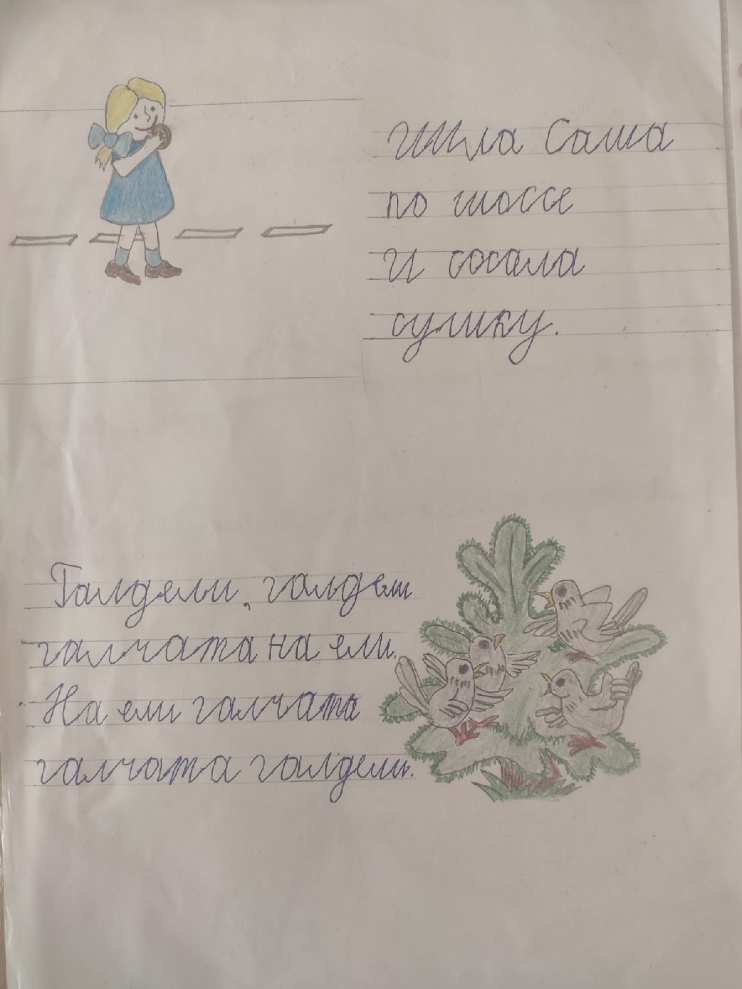 Шла Саша
по шоссе
И сосала
сушку.
Галдели, галдели
галчата на ели.
На ели галчата
галчата галдели.